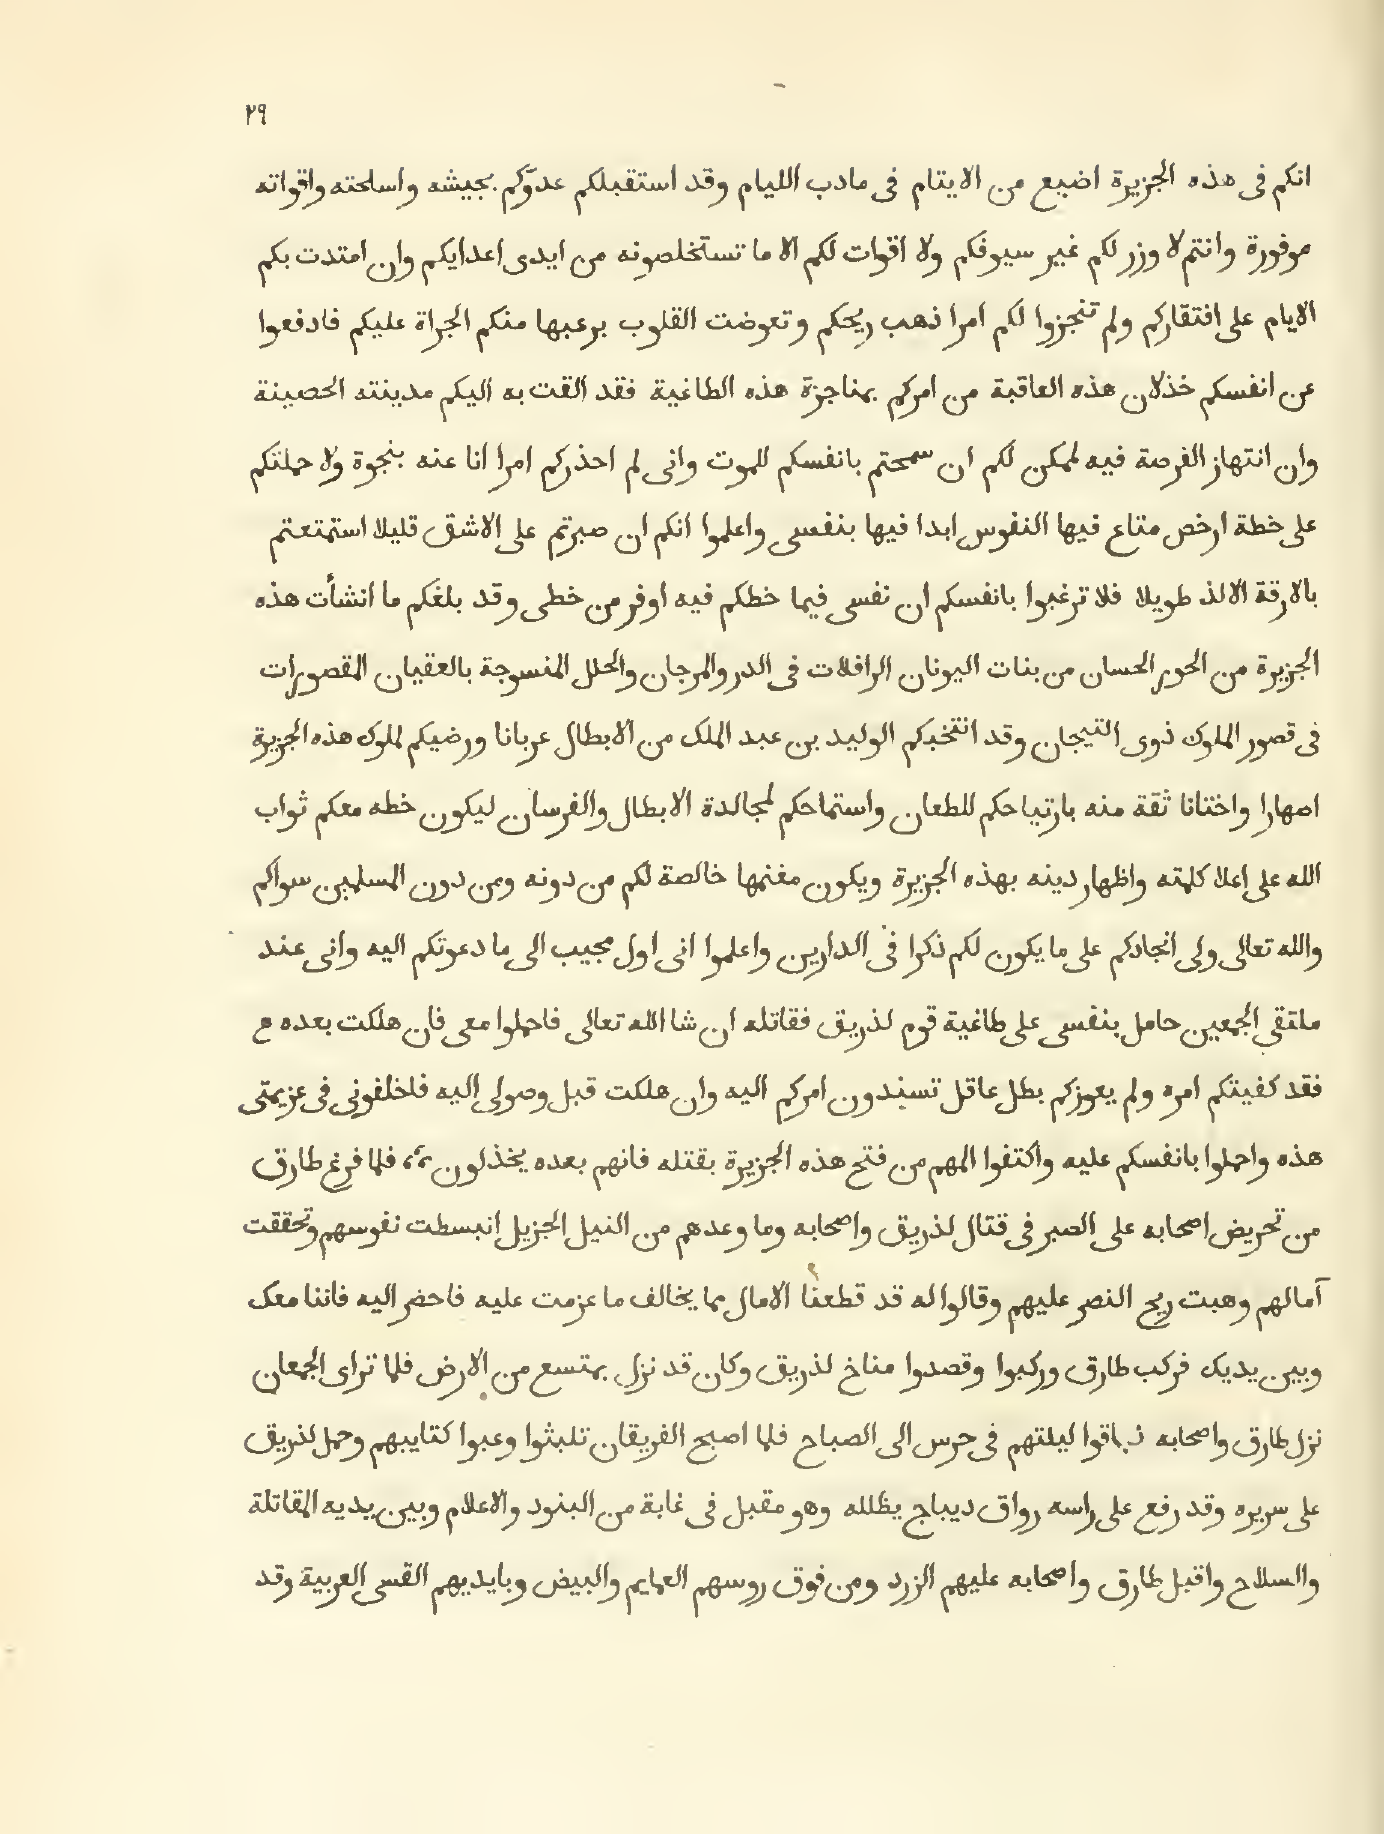 ٢٩
انكم فى هذه الجزيرة اضيع من الايتام فى مادب الليام وقد استقبلكم عدوّكم بجيشه واسلحته واقواته
موفورة وانتم لا وزر لكم غير سيوفكم ولا اقوات لكم الا ما تستخلصونه من ايدى اعدايكم وان امتدت بكم
الايام على افتقاركم ولم تنجزوا لكم امرا ذهب ريحكم وتعوضت القلوب برعبها منكم الجراة عليكم فادفعوا
عن انفسكم خذلان هذه العاقبة من امركم بمناجزة هذه الطاغية فقد القت به اليكم مدينته الحصينة
وان انتهاز الفرصة فيه لممكن لكم ان سمحتم بانفسكم للموت وانى لم احذركم امرا انا عنه بنجوة ولا حملتكم
على خطة ارخص متاع فيها النفوس ابدا فيها بنفسى واعلموا انكم ان صبرتم على الاشق قليلا استمتعتم
بالارقة الالذ طويلا فلا ترغبوا بانفسكم ان نفسى فيما خطكم فيه اوفر من خطى وقد بلغكم ما انشأت هذه
الجزيرة من الحور الحسان من بنات اليونان الرافلات فى الدر والمرجان والحلل المنسوجة بالعقيان المقصورات
فى قصور الملوك ذوى التيجان وقد انتخبكم الوليد بن عبد الملك من الابطال عربانا ورضيكم لملوك هذه الجزيرة
اصهارا واختانا ثقة منه بارتياحكم للطعان واستماحكم لمجالدة الابطال والفرسان ليكون خطه معكم ثواب
الله على اعلا كلمته واظهار دينه بهذه الجزيرة ويكون مغنمها خالصة لكم من دونه ومن دون المسلمين سواكم
والله تعالى ولى انجادكم على ما يكون لكم ذكرا فى الدارين واعلموا انى اول مجيب الى ما دعوتكم اليه وانى عند
ملتقى الجمعين حامل بنفسى على طاغية قوم لذريق فقاتله ان شا الله تعالى فاحملوا معى فان هلكت بعده
فقد كفيتكم امره ولم يعوزكم بطل عاقل تسندون امركم اليه وان هلكت قبل وصولى اليه فاخلفونى فى عزيمتى
هذه واحملوا بانفسكم عليه واكتفوا المهم من فتح هذه الجزيرة بقتله فانهم بعده يخذلون فلما فرغ طارق
من تحريض اصحابه على الصبر فى قتال لذريق واصحابه وما وعدهم من النيل الجزيل انبسطت نفوسهم وتحققت
آمالهم وهبت ريح النصر عليهم وقالوا له قد قطعنا الامال مما يخالف ما عزمت عليه فاحضر اليه فاننا معك
وبين يديك فركب طارق وركبوا وقصدوا مناخ لذريق وكان قد نزل بمتسع من الارض فلما تراى الجمعان
نزل طارق واصحابه فباقوا ليلتهم فى حرس الى الصباح فلما اصبح الفريقان تلبثوا وعبوا كتايبهم وحمل لذريق
على سريره وقد رفع على راسه رواق ديباج يظلله وهو مقبل فى غابة من البنود والاعلام وبين يديه المقاتلة
واالسلاح واقبل طارق واصحابه عليهم الزرد ومن فوق روسهم العمايم والبيض وبايديهم القسى العربية وقد